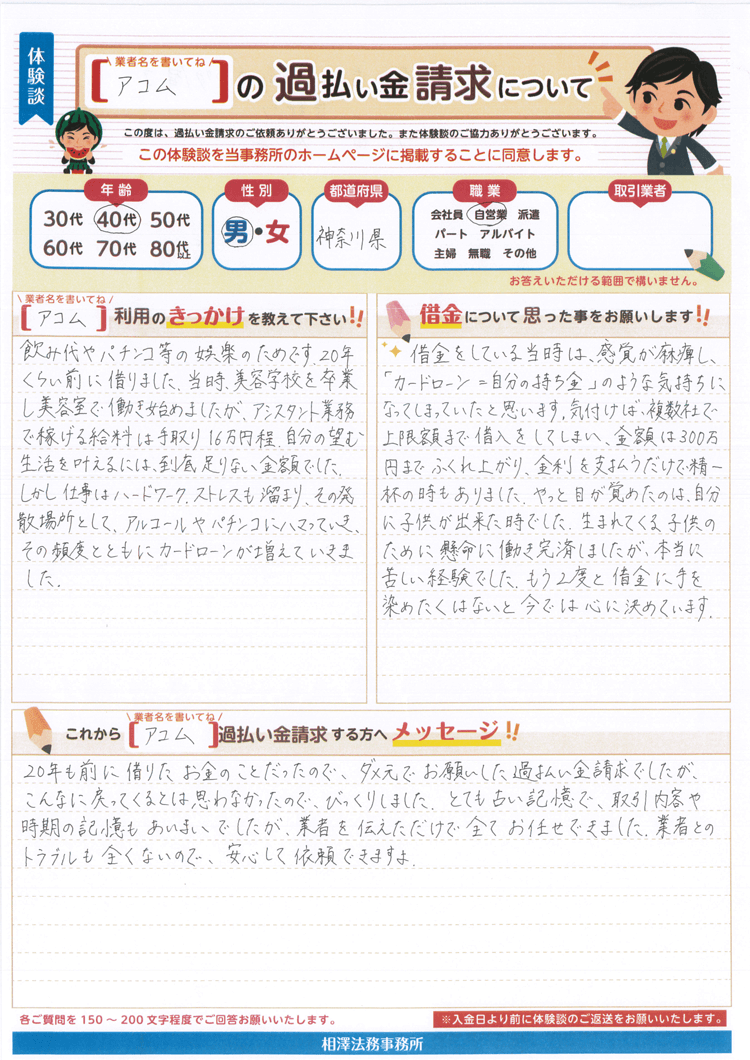 体験談
業者名を書いてね
[アコム]の過払い金請求について
この度は、過払い金請求のご依頼ありがとうございました。また体験談のご協力ありがとうございます。
この体験談を当事務所のホームページに掲載することに同意します。
年齢
30代 40代 50代
60代 70代 80代以上
性別
男・女
都道府県
神奈川県
職業
会社員 自営業 派遣
パート アルバイト
主婦 無職 その他
取引業者
お答えいただける範囲で構いません。
業者名を書いてね
[アコム]利用のきっかけを教えて下さい!!
飲み代やパチンコ等の娯楽のためです。20年
くらい前に借りました。当時、美容学校を卒業
し美容室で働き始めましたが、アシスタント業務
で稼げる給料は手取り16万円程。自分の望む
生活を叶えるには、到底足りない金額でした。
しかし仕事はハードワーク。ストレスも溜まり、その発
散場所として、アルコールやパチンコにハマっていき、
その頻度とともにカードローンが増えていきま
した。
借金について思った事をお願いします!!
借金をしている当時は、感覚が麻痺し、
「カードローン=自分の持ち金」のような気持ちに
なってしまっていたと思います。気付けば、複数社で
上限額まで借入をしてしまい、金額は300万
円までふくれ上がり、金利を支払うだけで精一
杯の時もありました。やっと目が覚めたのは、自分
に子供が出来た時でした。生まれてくる子供の
ために懸命に働き完済しましたが、本当に
苦しい経験でした。もう2度と借金に手を
染めたくはないと今では心に決めています。
業者名を書いてね
これから[アコム]過払い金請求する方へメッセージ!!
20年も前に借りたお金のことだったので、ダメ元でお願いした過払い金請求でしたが、
こんなに戻ってくるとは思わなかったので、びっくりしました。とても古い記憶で、取引内容や
時期の記憶もあいまいでしたが、業者を伝えただけで全てお任せできました。業者との
トラブルも全くないので、安心して依頼できますよ。
各ご質問を150～200文字程度でご回答お願いいたします。
※入金日より前に体験談のご返送をお願いいたします。
相澤法務事務所